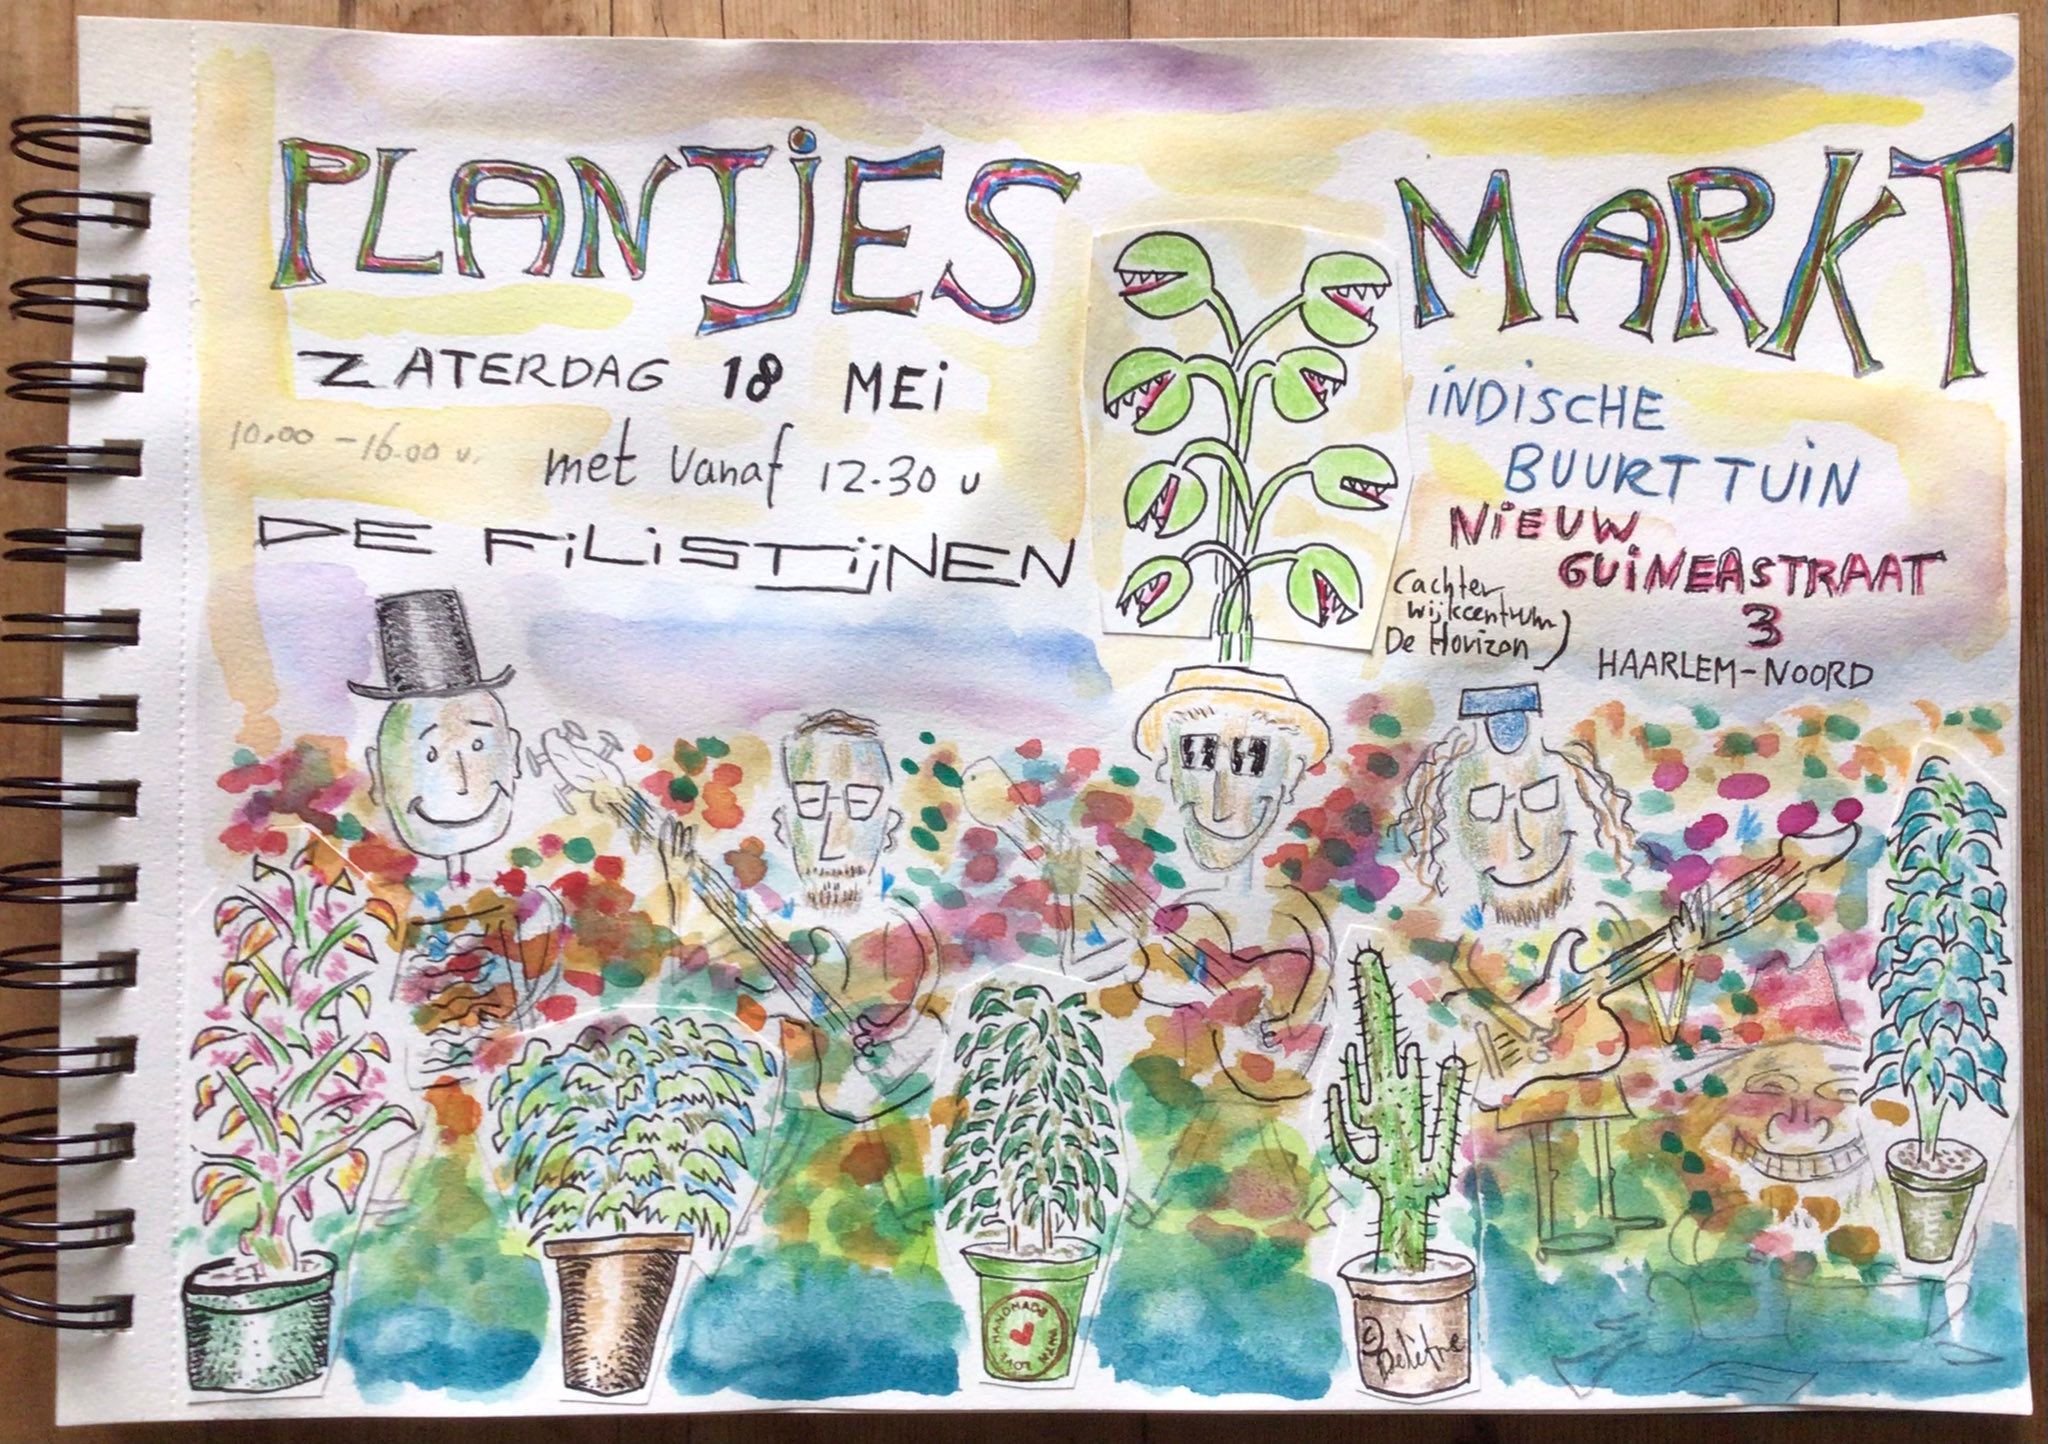 PLANTjES MARKT
ZATERDAG 18 MEi
10.00 - 16.00 u.
met vanaf 12.30 u
DE FiLiSTijNEN
iNDiSCHE
BUURT TUiN
NiEUW
GUiNEASTRAAT
3
(achter
wijkcentrum
De Horizon)
HAARLEM-NOORD
HANDMADE
WITH LOVE
© Belétre